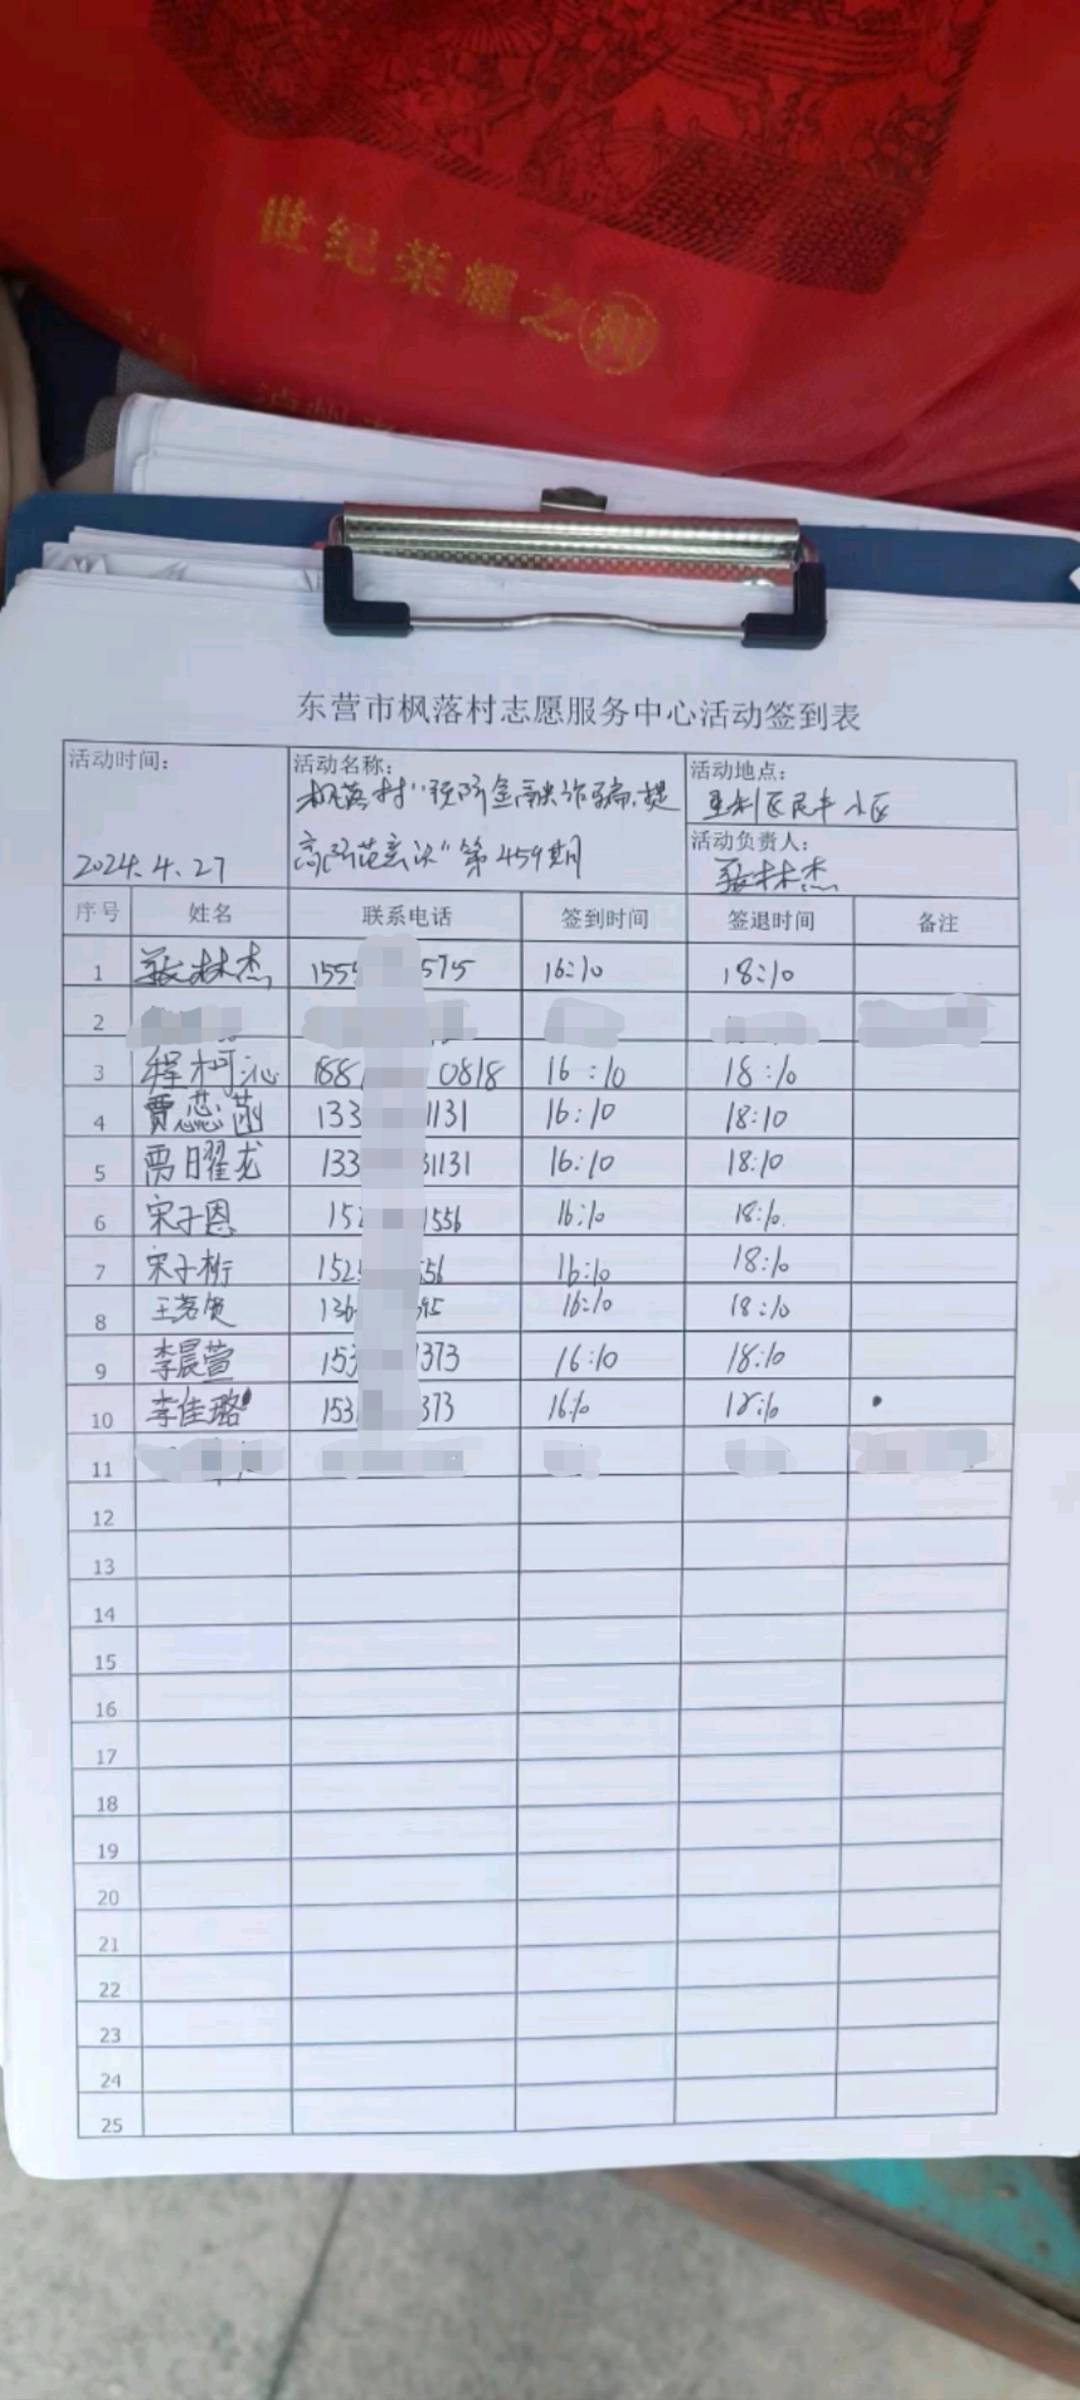 世纪荣耀之
东营市枫落村志愿服务中心活动签到表
活动时间:
2024.4.27
活动名称:
枫落村"预防金融诈骗,提
高防范意识"第459期
活动地点:
垦利区民丰小区
活动负责人:
张林杰
序号 姓名 联系电话 签到时间 签退时间 备注
1 张林杰 155 575 16:10 18:10
2
3 程柯沁 188 0818 16:10 18:10
4 贾蕊菡 133 1131 16:10 18:10
5 贾日曜龙 133 31131 16:10 18:10
6 宋子恩 15 1556 16:10 18:10
7 宋子桁 152 56 16:10 18:10
8 王 136 95 16:10 18:10
9 李晨萱 153 1373 16:10 18:10
10 李佳璐 153 373 16:10 18:10
11
12
13
14
15
16
17
18
19
20
21
22
23
24
25